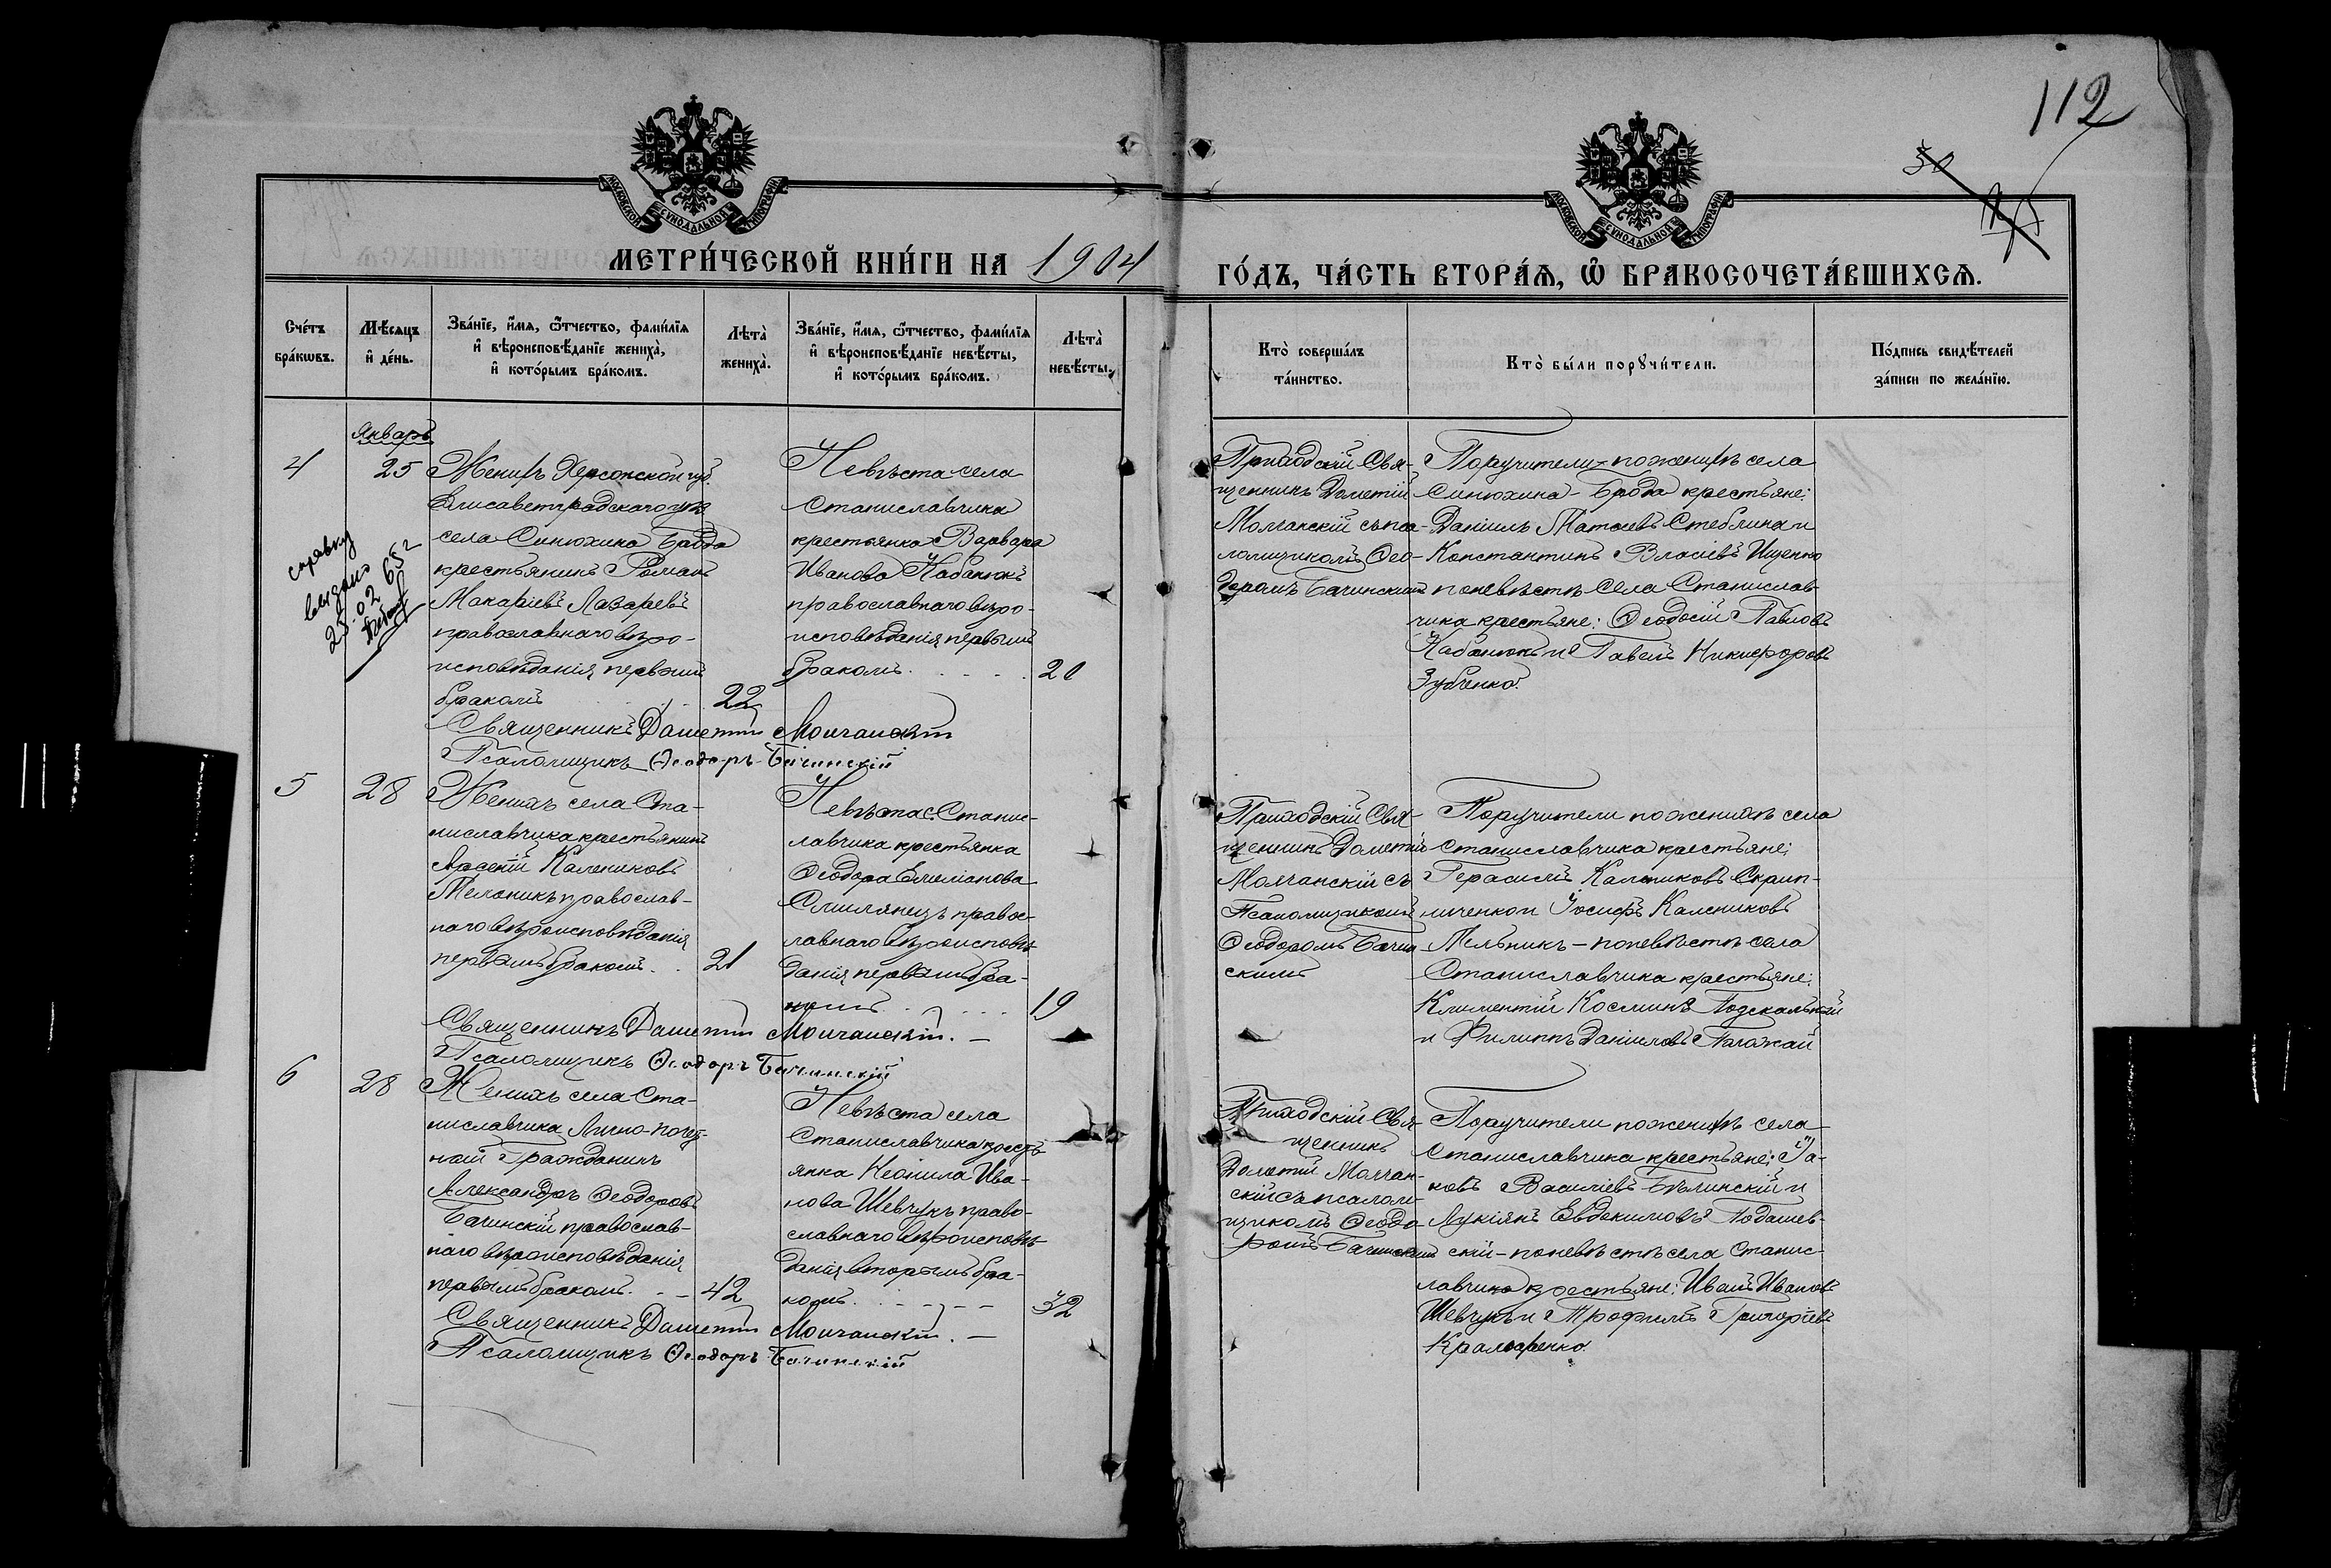 112
30
МОСКОВСКОЙ СѴНОДАЛЬНОЙ ТИПОГРАФІИ
МОСКОВСКОЙ СѴНОДАЛЬНОЙ ТИПОГРАФІИ
МЕТРИ́ЧЕСКОЙ КНИ́ГИ НА 1904
ГО́ДЪ, ЧА́СТЬ ВТОРА́Ѧ, Ѽ БРАКОСОЧЕТА́ВШИХСѦ.
Сче́тъ бра́кѡвъ.
Мѣ́сяцъ и҆ де́нь.
Зва́нїе, и҆́мѧ, ѻ҆́тчество, фами́лїѧ и҆ вѣроисповѣ́данїе жениха̀, и҆ кото́рымъ бра́комъ.
Лѣта̀ жениха̀.
Зва́нїе, и҆́мѧ, ѻ҆́тчество, фами́лїѧ и҆ вѣроисповѣ́данїе невѣ́сты, и҆ кото́рымъ бра́комъ.
Лѣта̀ невѣ́сты.
Кто̀ соверша́лъ та́инство.
Кто̀ бы́ли порꙋчи́тели.
По́дпись свидѣ́телей за́писи по жела́нїю.
Январь
4
25
справку
выдано
25.02.65 г
Женихъ Херсонской губ.
Елисаветградскаго уѣз.
села Синюхина Брода
крестьянинъ Романъ
Макаріевъ Лазаревъ
православнаго вѣро-
исповѣданія, первымъ
бракомъ
22
Невѣста села
Станиславчика
крестьянка Варвара
Иванова Кабанюкъ
православнаго вѣро-
исповѣданія, первымъ
бракомъ.
21
Приходскій Свя-
щенникъ Дометій
Молчанскій съ пса-
ломщикомъ Ѳео-
доромъ Бачинскимъ
Поручители по женихѣ села
Синюхина-Брода крестьяне:
Даніилъ Матѳіевъ Стеблина и
Константинъ Власіевъ Ищенко
по невѣстѣ села Станислав-
чика крестьяне: Ѳеодосій Павловъ
Кабанюкъ и Павелъ Никифоровъ
Зубченко.
Священникъ Дометій Молчанскій
Псаломщикъ Ѳеодоръ Бачинскій
5
28
Женихъ села Ста-
ниславчика крестьянинъ
Арсеній Калениковъ
Мельникъ православ-
наго вѣроисповѣданія
первымъ бракомъ.
21
Невѣста с. Станис-
лавчика крестьянка
Ѳеодора Емеліанова
Смилянецъ правос-
лавнаго вѣроисповѣ-
данія, первымъ бра-
комъ
19
Приходскій Свя-
щенникъ Дометій
Молчанскій съ
Псаломщикомъ
Ѳеодоромъ Бачин-
скимъ
Поручители по женихѣ села
Станиславчика крестьяне:
Герасимъ Калениковъ Скрип-
ниченко и Іосифъ Калениковъ
Мельникъ - по невѣстѣ села
Станиславчика крестьяне:
Климентій Косминъ Подскальный
и Филиппъ Даніиловъ Палажай
Священникъ Дометій Молчанскій. -
Псаломщикъ Ѳеодоръ Бачинскій
6
28
Женихъ села Ста-
ниславчика Лично-почет-
ный Гражданинъ
Александръ Ѳеодоровъ
Бачинскій православ-
наго вѣроисповѣданія
первымъ бракомъ.
42
Невѣста села
Станиславчика кресть-
янка Неонила Ива-
нова Шевчукъ право-
славнаго вѣроисповѣ-
данія вторымъ бра-
комъ.
32
Приходскій Свя-
щенникъ
Дометій Молчан-
скій съ псалом-
щикомъ Ѳеодо-
ромъ Бачинскимъ
Поручители по женихѣ села
Станиславчика крестьяне: Іа-
ковъ Василіевъ Бѣлинскій и
Лукіянъ Евдокимовъ Подашев-
скій - по невѣстѣ села Станис-
лавчика крестьяне: Иванъ Ивановъ
Шевчукъ и Трофимъ Григоріевъ
Крамаренко.
Священникъ Дометій Молчанскій. -
Псаломщикъ Ѳеодоръ Бачинскій